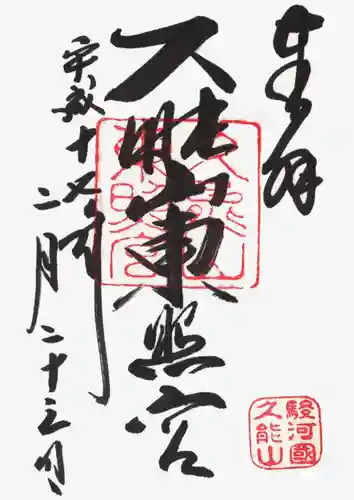 奉拝
久能山東照宮
平成十七年
二月二十三日
駿河國
久能山